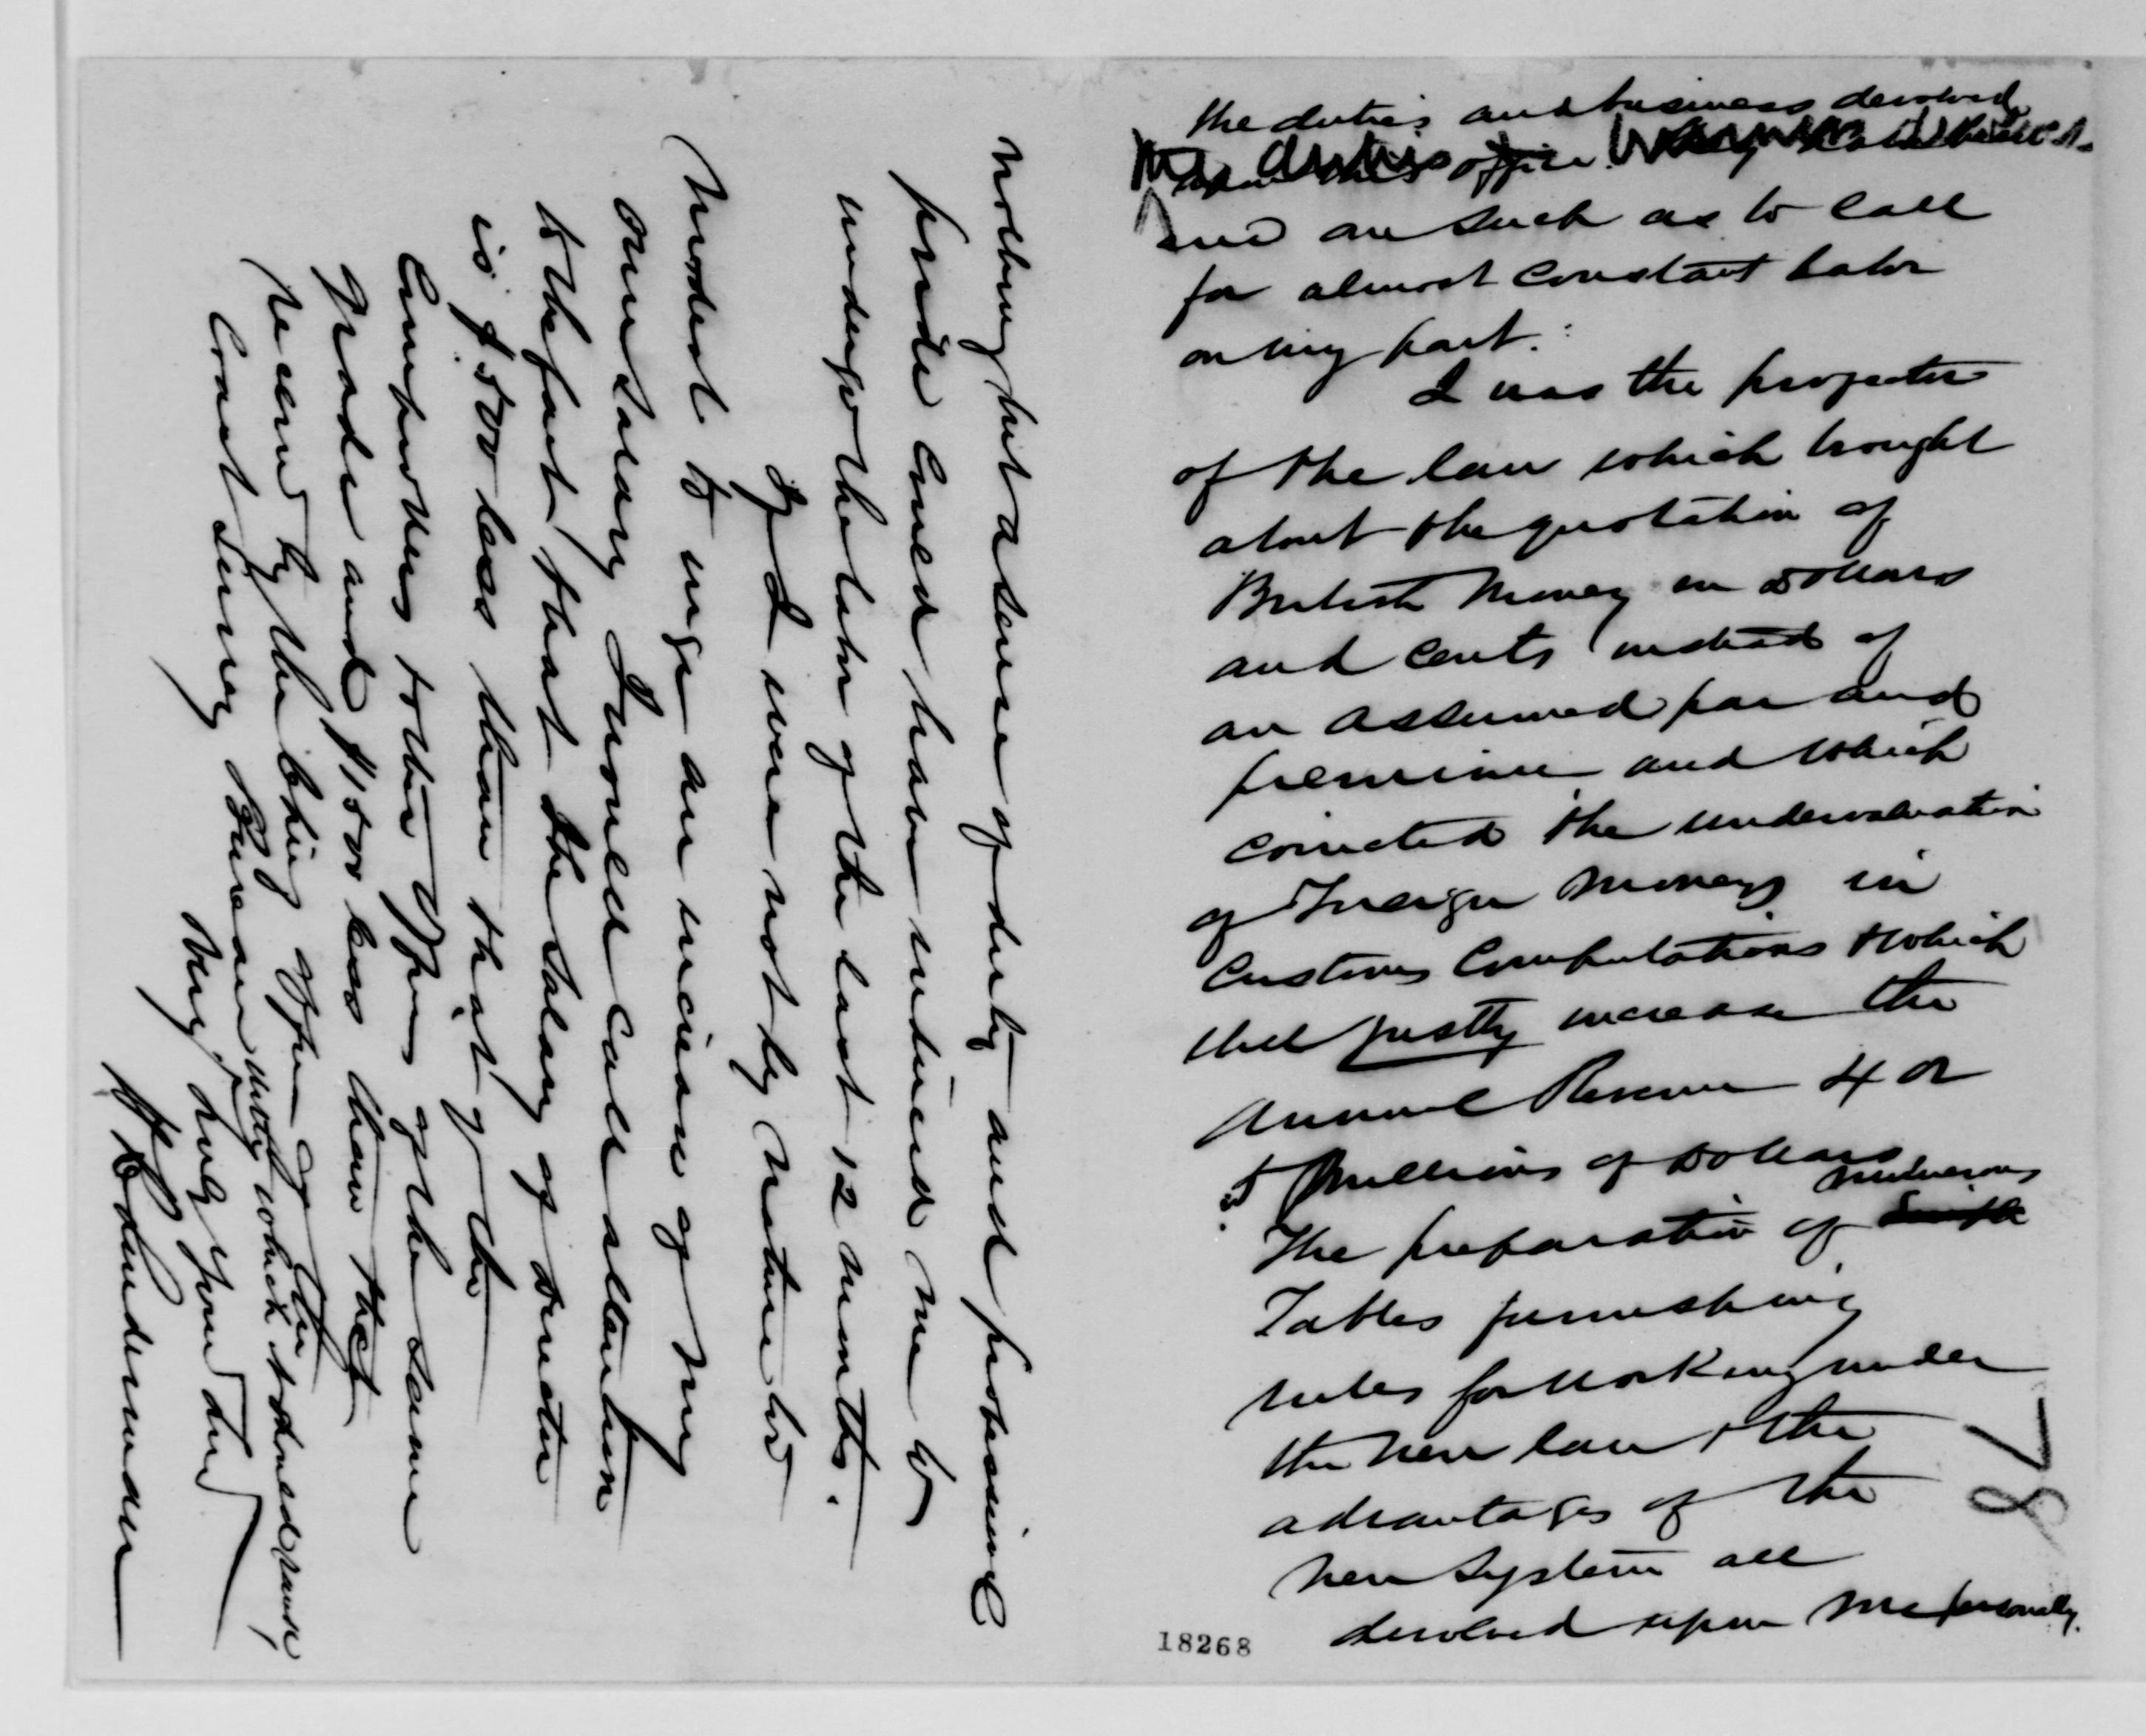 the duties and business devolved
upon this office
and are such as to call
for almost constant labor
on my part.
I was the projector
of the law which brought
about the quotation of
British Money in Dollars
and Cents instead of
an assumed par and
premium and which
corrected the undervaluation
of Foreign Moneys in
Customs Computations & which
will justly increase the
Annual Revenue 4 or
5 Millions of Dollars
numerous
The preparation of
Tables furnishing
rules for working under
the new law & the
advantages of the
new system all
devolved upon me personally.
87
18268
Nothing but a sense of duty and professional
pride could have induced me to
undergo the labor of the last 12 months.
If I were not by nature too
modest to urge an increase of my
own salary I would call attention
to the fact that the salary of Director
is $500 less than that of the
Comptrollers & other officers of the same
grade and $1500 less than that
received by the Chief officer of the
Coast Survey Bureau which
Very truly your obt
H R Linderman